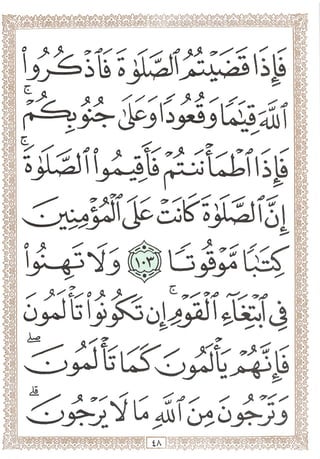 فَإِذَا قَضَيْتُمُ ٱلصَّلَوٰةَ فَٱذْكُرُوا۟
ٱللَّهَ قِيَٰمًا وَقُعُودًا وَعَلَىٰ جُنُوبِكُمْ ۚ
فَإِذَا ٱطْمَأْنَنتُمْ فَأَقِيمُوا۟ ٱلصَّلَوٰةَ ۚ
إِنَّ ٱلصَّلَوٰةَ كَانَتْ عَلَى ٱلْمُؤْمِنِينَ
كِتَٰبًا مَّوْقُوتًا ١٠٣ وَلَا تَهِنُوا۟
فِى ٱبْتِغَآءِ ٱلْقَوْمِ ۖ إِن تَكُونُوا۟ تَأْلَمُونَ
فَإِنَّهُمْ يَأْلَمُونَ كَمَا تَأْلَمُونَ ۖ
وَتَرْجُونَ مِنَ ٱللَّهِ مَا لَا يَرْجُونَ ۗ
٤٨